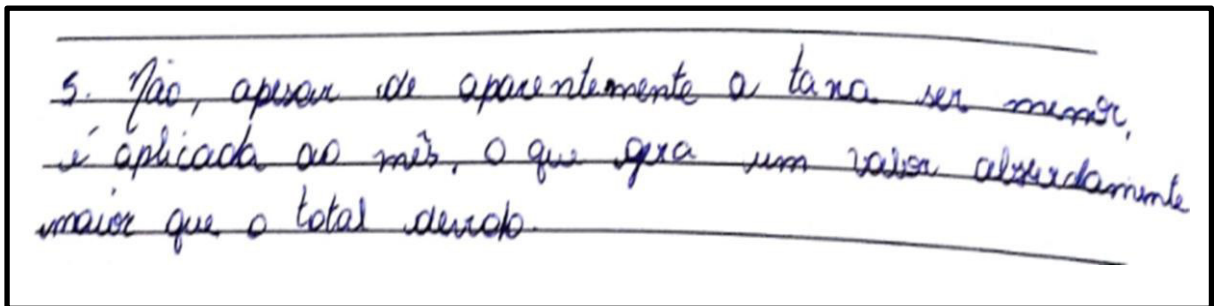 5. Não, apesar de aparentemente a taxa ser menor,
é aplicada ao mês, o que gera um valor absurdamente
maior que o total devido.